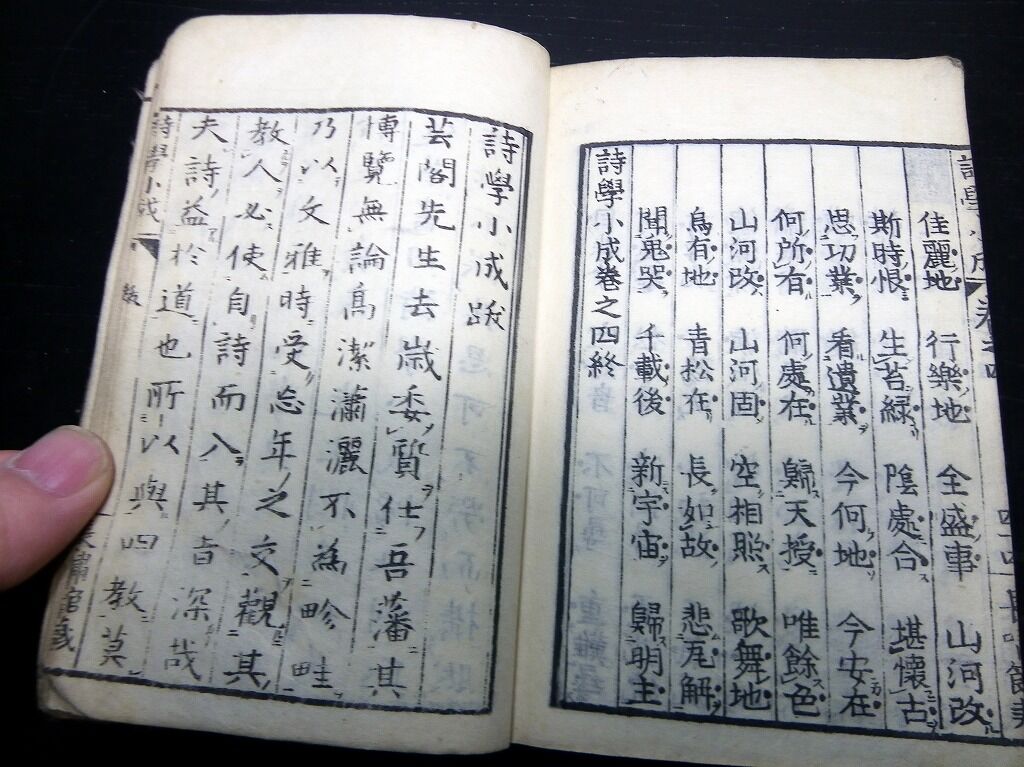 佳麗地 行樂地 全盛事 山河改
斯時恨 生苔緑 陰處合 堪懷古
思功業 看遺業 今何地 今安在
何所有 何處在 歸天授 唯餘色
山河改 山河固 空相照 歌舞地
烏有地 青松在 長如故 悲瓦解
聞鬼哭 千載後 新宇宙 歸明主
詩學小成卷之四終
詩學小成跋
芸閣先生去歳委質仕吾藩其
博覽無論高潔瀟灑不為畛畦
乃以文雅時受忘年之交觀其
教人必使自詩而入其旨深哉
夫詩益於道也所以與四教莫
詩學小成